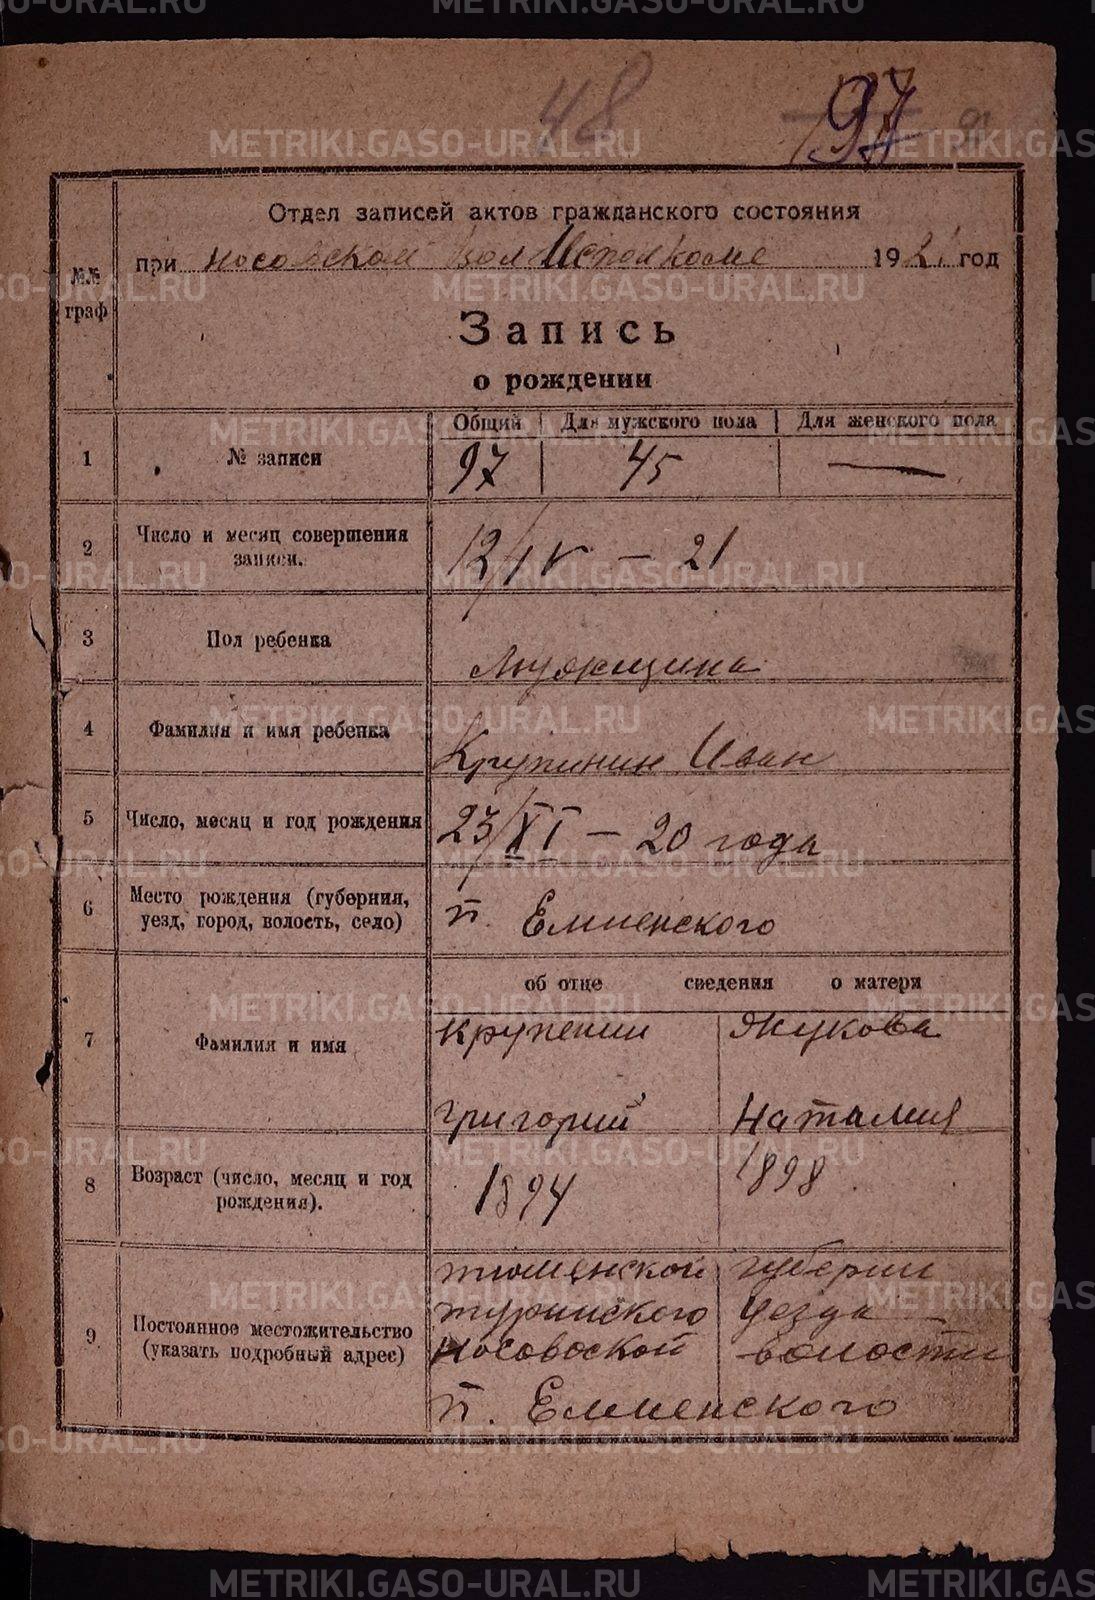 METRIKI.GASO-URAL.RU
48
97
Отдел записей актов гражданского состояния
при Носовском Вол Исполкоме 1921 год
№№
граф
Запись
о рождении
Общий Для мужского пола Для женского пола
1 № записи 97 45 —
2 Число и месяц совершения
записи. 12/IV — 21
3 Пол ребенка Мужщина
4 Фамилия и имя ребенка Крупинин Иван
5 Число, месяц и год рождения 23/XI — 20 года
6 Место рождения (губерния,
уезд, город, волость, село) п. Елиенского
об отце сведения о матери
7 Фамилия и имя Крупенин Жукова
Григорий Наталия
8 Возраст (число, месяц и год
рождения). 1894 1898
9 Постоянное местожительство
(указать подробный адрес)
тюменской губернии
туринского уезда
Носовоской волости
п. Елиенского